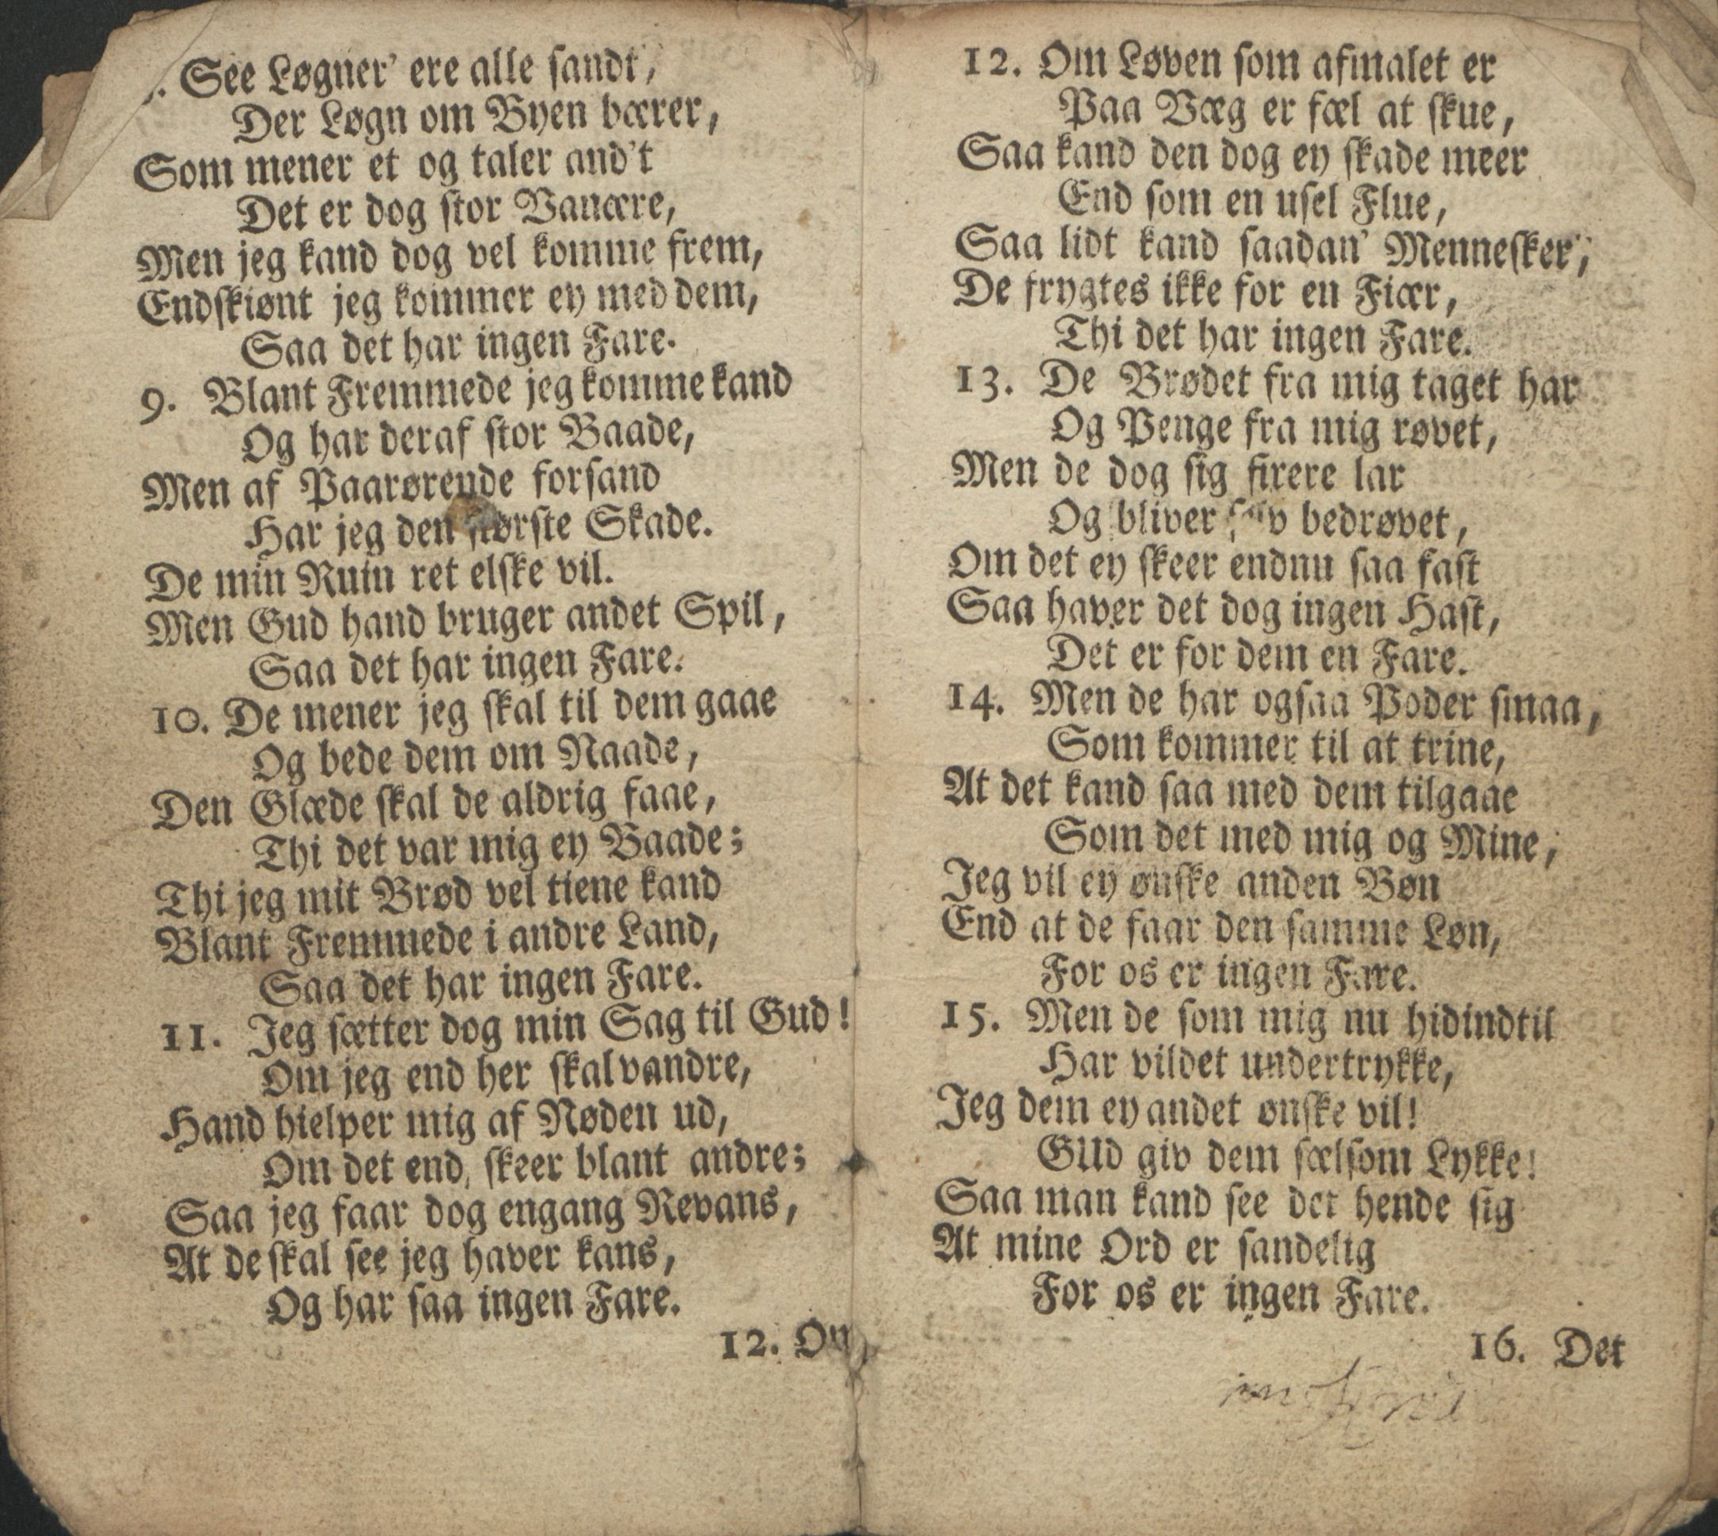 See Løgner' ere alle sandt,
Der Løgn om Byen bærer,
Som mener et og taler and't
Det er dog stor Vanære,
Men jeg kand dog vel komme frem,
Endskiønt jeg kommer ey med dem,
Saa det har ingen Fare.
9. Blant Fremmede jeg komme kand
Og har deraf stor Baade,
Men af Paarørende forsand
Har jeg den største Skade.
De min Ruin ret elske vil.
Men Gud hand bruger andet Spil,
Saa det har ingen Fare.
10. De mener jeg skal til dem gaae
Og bede dem om Naade,
Den Glæde skal de aldrig faae,
Thi det var mig ey Baade;
Thi jeg mit Brød vel tiene kand
Blant Fremmede i andre Land,
Saa det har ingen Fare.
11. Jeg sætter dog min Sag til Gud!
Om jeg end her skal vandre,
Hand hielper mig af Nøden ud,
Om det end, skeer blant andre;
Saa jeg faar dog engang Revans,
At de skal see jeg haver kans,
Og har saa ingen Fare.
12. Om
12. Om Løven som afmalet er
Paa Væg er fæl at skue,
Saa kand den dog ey skade meer
End som en usel Flue,
Saa lidt kand saadan' Mennesker,
De frygtes ikke for en Fiær,
Thi det har ingen Fare.
13. De Brødet fra mig taget har
Og Penge fra mig røvet,
Men de dog sig firere lar
Og bliver selv bedrøvet,
Om det ey skeer endnu saa fast
Saa haver det dog ingen Hast,
Det er for dem en Fare.
14. Men de har ogsaa Poder smaa,
Som kommer til at trine,
At det kand saa med dem tilgaae
Som det med mig og Mine,
Jeg vil ey ønske anden Bøn
End at de faar den samme Løn,
For os er ingen Fare.
15. Men de som mig nu hidindtil
Har vildet undertrykke,
Jeg dem ey andet ønske vil!
GUd giv dem sælsom Lykke!
Saa man kand see det hende sig
At mine Ord er sandelig
For os er ingen Fare.
16. Det